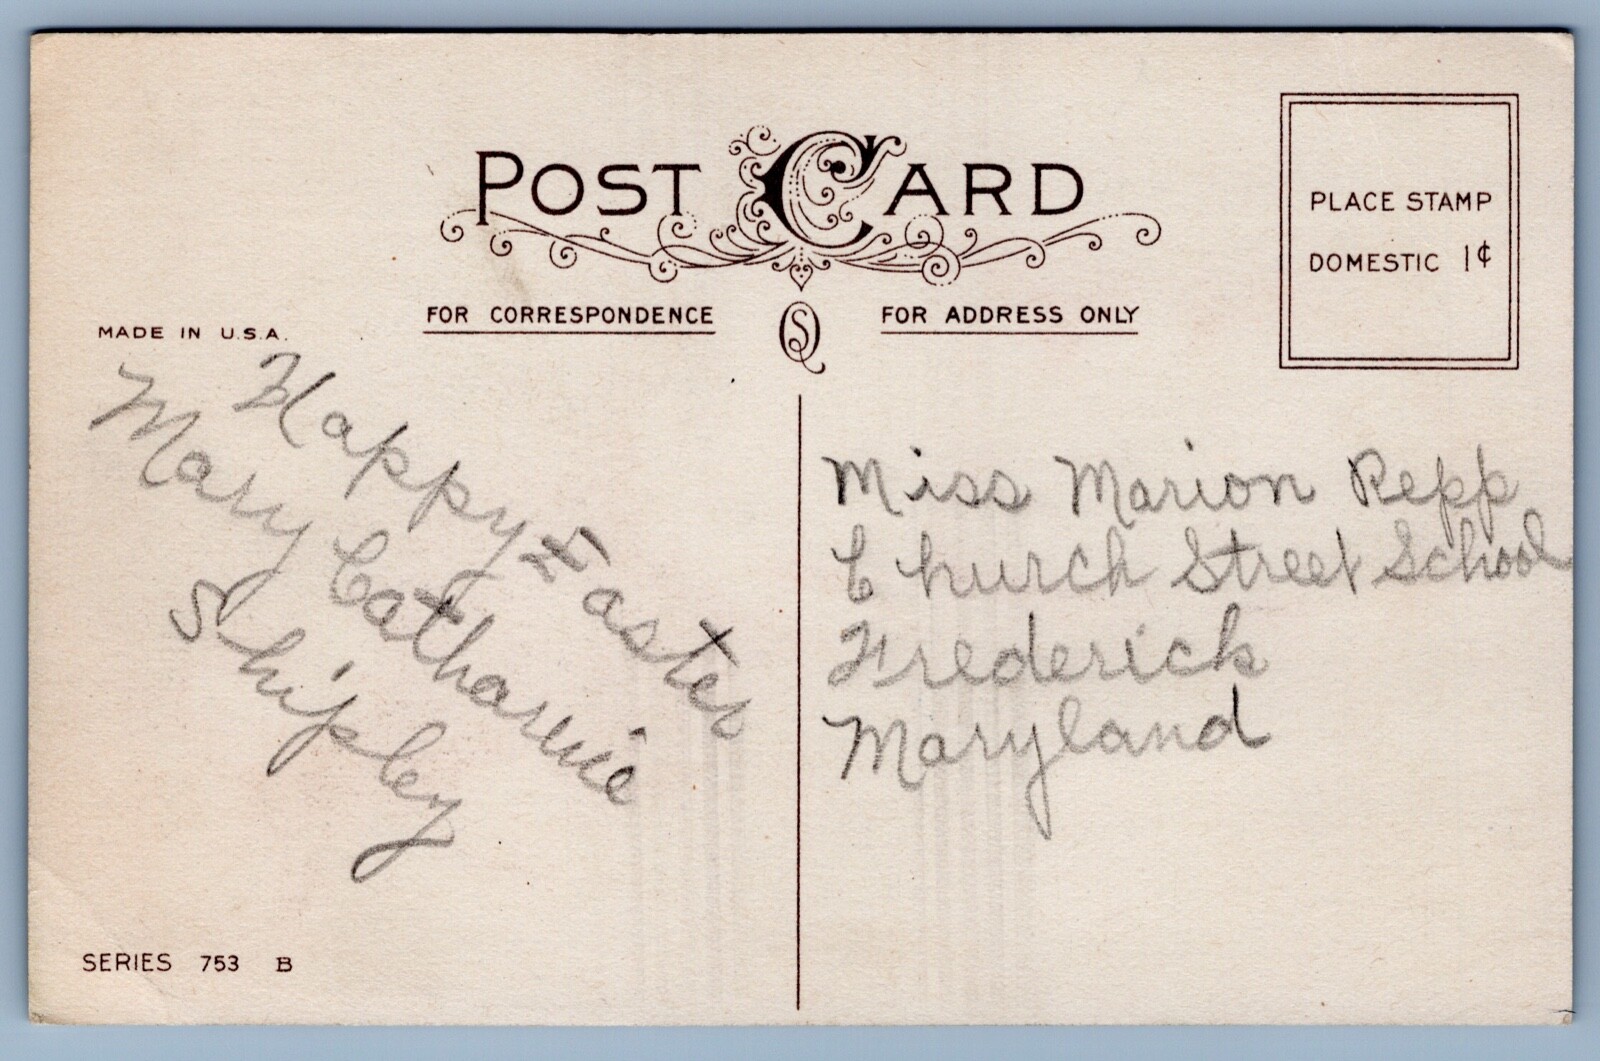 POST CARD
PLACE STAMP
DOMESTIC 1¢
FOR CORRESPONDENCE
SQ
FOR ADDRESS ONLY
MADE IN U.S.A.
Happy Easter
Mary Catharine
Shipley
Miss Marion Repp
Church Street School
Frederick
Maryland
SERIES 753 B